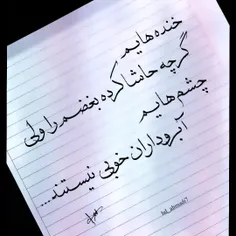 خنده هایم
گرچه حاشا کرده بغضم را ولی
چشم هایم
آبروداران خوبی نیستند...